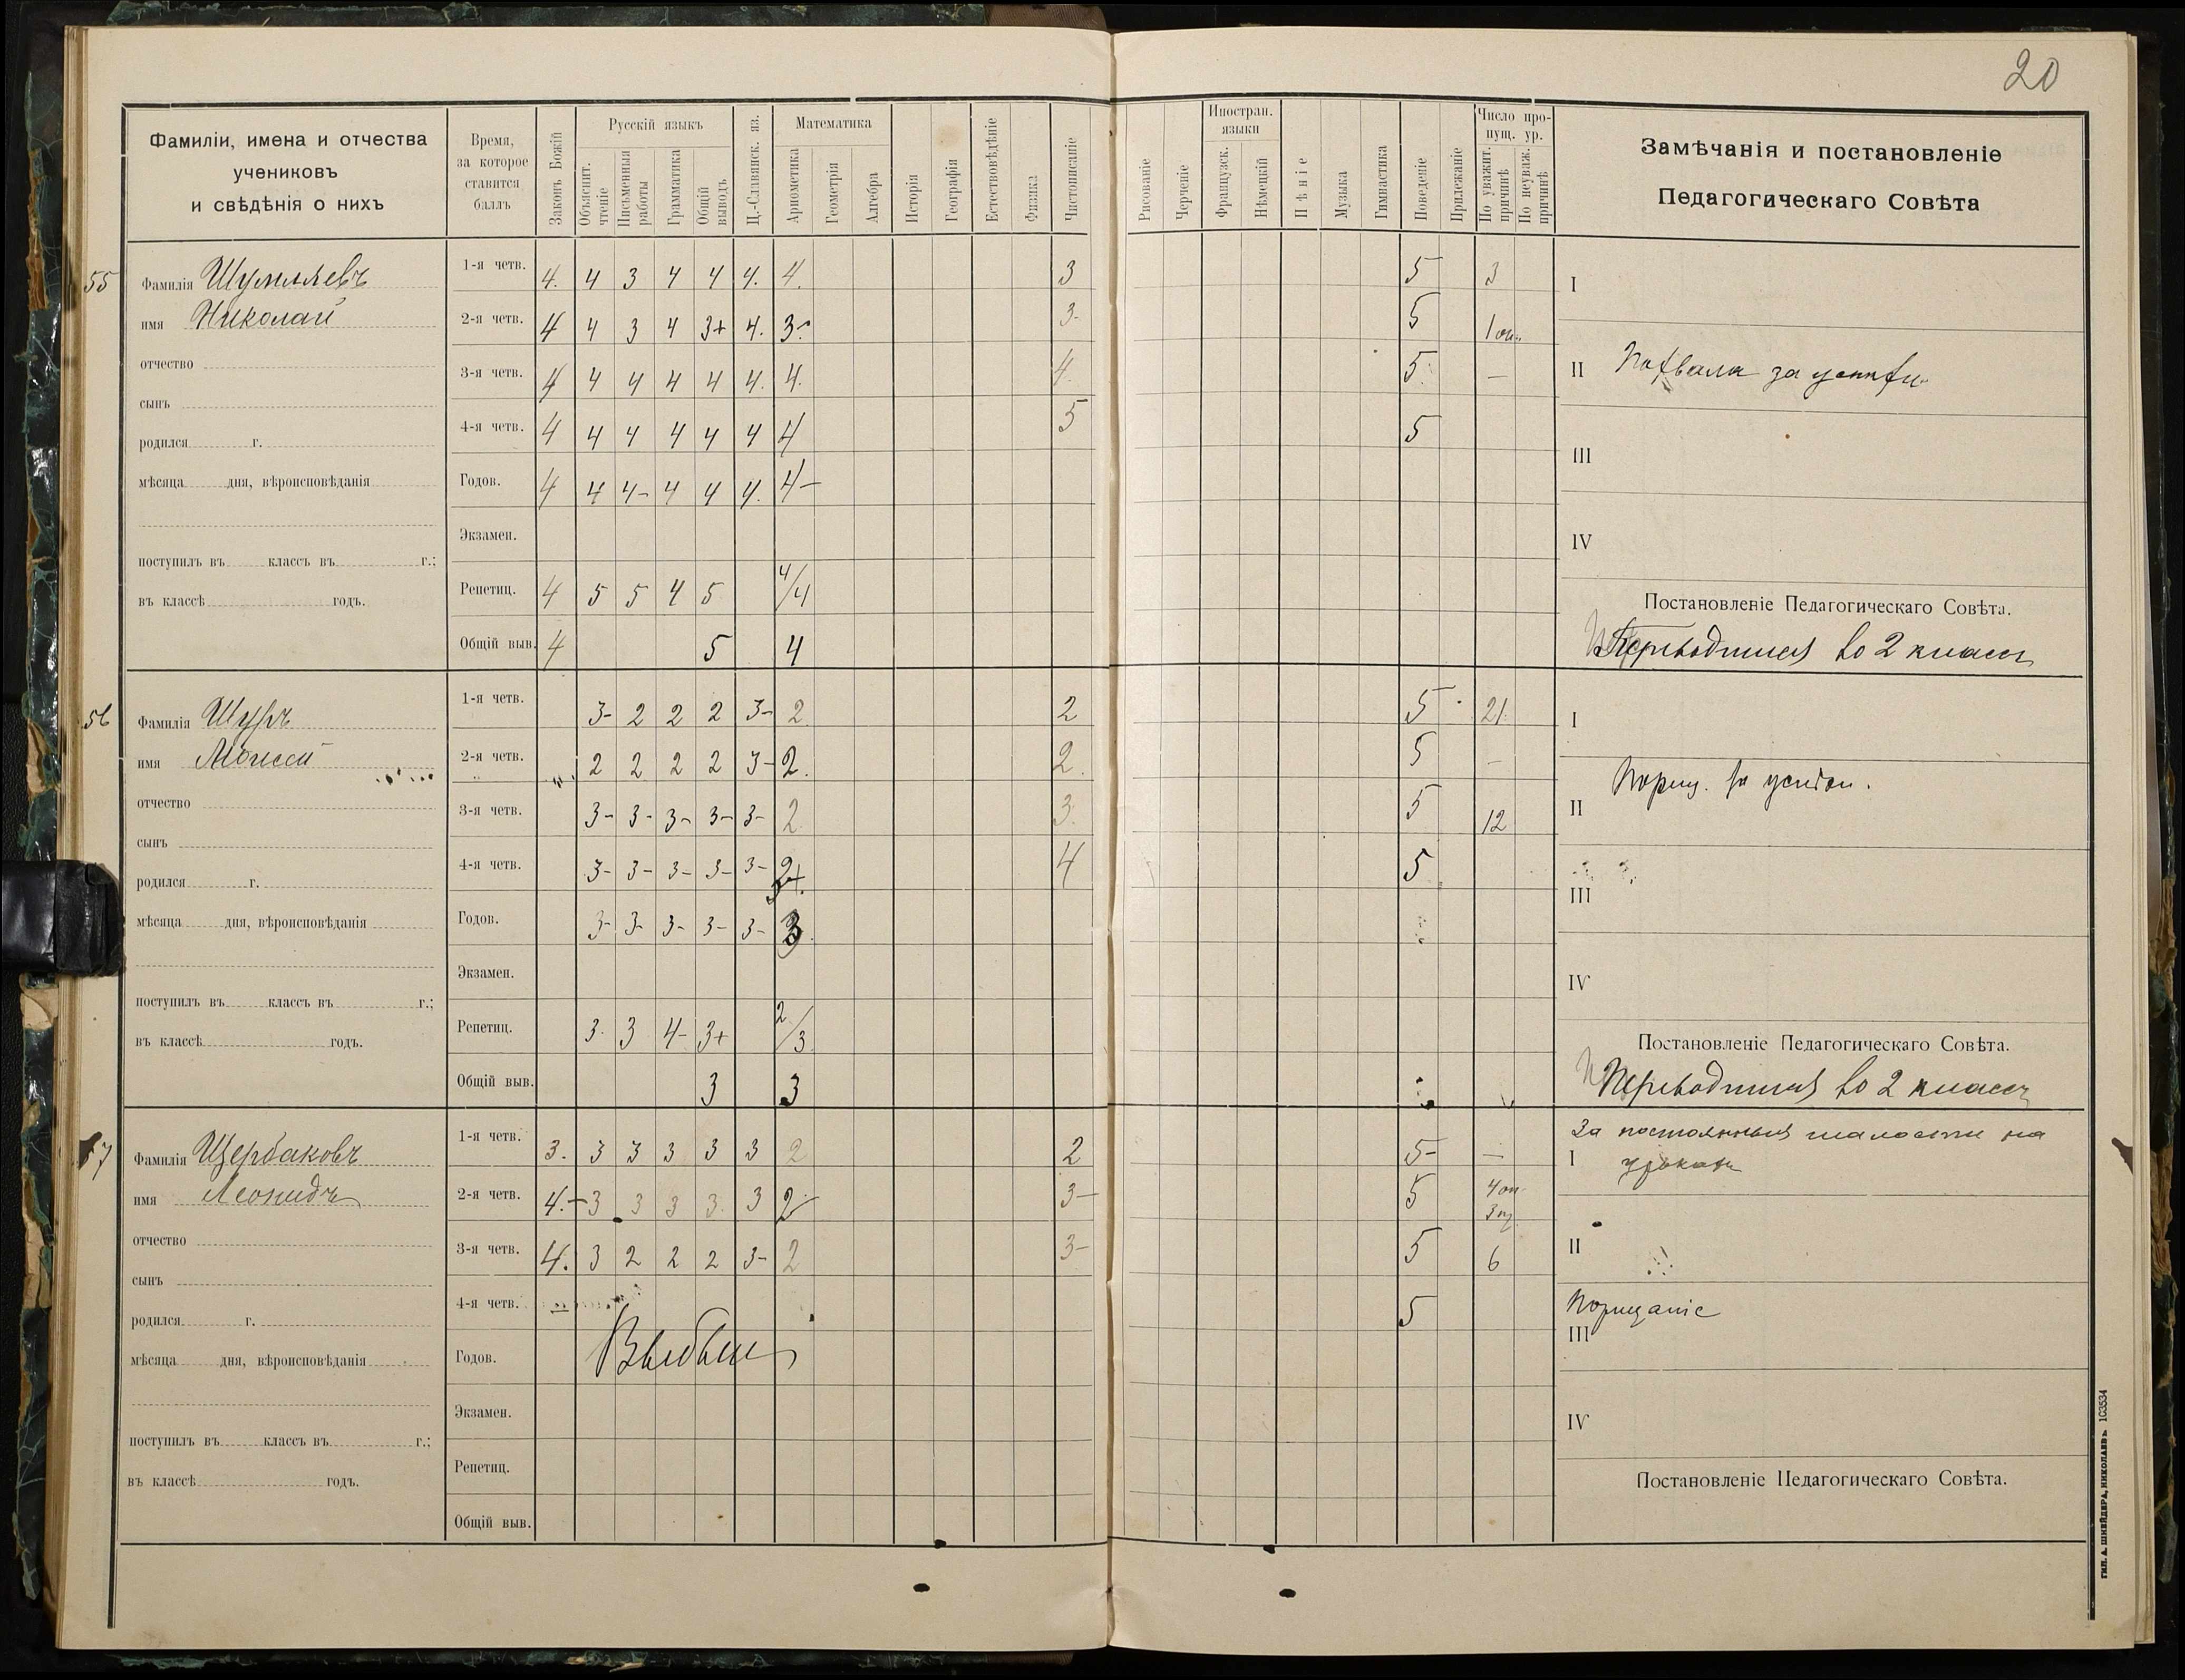 20
Фамиліи, имена и отчества
учениковъ
и свѣдѣнія о нихъ
Время,
за которое
ставится
баллъ
Законъ Божій
Русскій языкъ
Объяснит. чтеніе
Письменныя работы
Грамматика
Общій выводъ
Ц.-Славянск. яз.
Математика
Ариөметика
Геометрія
Алгебра
Исторія
Географія
Естествовѣдѣніе
Физика
Чистописаніе
Рисованіе
Черченіе
Иностран. языки
Французск.
Нѣмецкій
Пѣніе
Музыка
Гимнастика
Поведеніе
Прилежаніе
Число пропущ. ур.
По уважит. причинѣ
По неуваж. причинѣ
Замѣчанія и постановленіе
Педагогическаго Совѣта
55
Фамилія Шумляевъ
имя Николай
отчество
сынъ
родился г.
мѣсяца дня, вѣроисповѣданія
поступилъ въ классъ въ г.;
въ классѣ годъ.
1-я четв. 4. 4 3 4 4 4. 4. 3 5 3
2-я четв. 4 4 3 4 3+ 4. 3- 3- 5 1
3-я четв. 4 4 4 4 4 4. 4. 4. 5 —
4-я четв. 4 4 4 4 4 4 4 5 5
Годов. 4 4 4- 4 4 4. 4-
Экзамен.
Репетиц. 4 5 5 4 5 4/4
Общій выв. 4 5 4
I
II Похвала за успѣхи
III
IV
Постановленіе Педагогическаго Совѣта.
Переводится во 2 классъ
56
Фамилія Шуръ
имя Моисей
отчество
сынъ
родился г.
мѣсяца дня, вѣроисповѣданія
поступилъ въ классъ въ г.;
въ классѣ годъ.
1-я четв. 3- 2 2 2 3- 2 2 5 21
2-я четв. 2 2 2 2 3- 2. 2. 5 —
3-я четв. 3- 3- 3- 3- 3- 2 3. 5 12
4-я четв. 3- 3- 3- 3- 3- 2+ 4 5
Годов. 3- 3- 3- 3- 3- 3
Экзамен.
Репетиц. 3- 3 4- 3+ 2/3
Общій выв. 3 3
I
II Пориц. за успѣхи.
III
IV
Постановленіе Педагогическаго Совѣта.
Переводится во 2 классъ
7
Фамилія Щербаковъ
имя Леонидъ
отчество
сынъ
родился г.
мѣсяца дня, вѣроисповѣданія
поступилъ въ классъ въ г.;
въ классѣ годъ.
1-я четв. 3. 3 3 3 3 3 2 2 5- —
2-я четв. 4.- 3 3 3 3. 3 2- 3- 5 4 3
3-я четв. 4. 3 2 2 2 3- 2 3- 5 6
4-я четв. 5
Годов. Выбылъ
Экзамен.
Репетиц.
Общій выв.
За постоянныя шалости на
I урокахъ
II
Порицаніе
III
IV
Постановленіе Педагогическаго Совѣта.
ТИП. А. ШНЕЙДЕРА, НИКОЛАЕВЪ. 103534